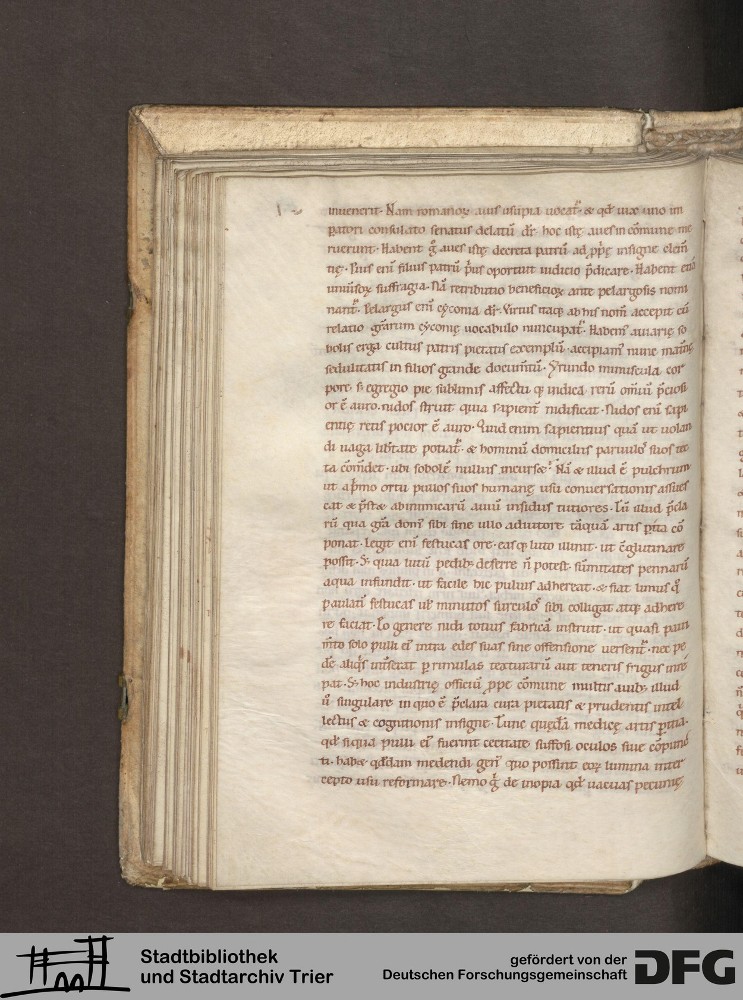 inuenerit. Nam romanoꝝ auis usu pia uocat᷑. & qđ uix uno im
ꝑatori consulato senatus delatū. dr̄. hoc istę aues in cōmune me
ruerunt. Habent ḡ aues istę decreta patrū ad ꝓpͥę insigne clem̄
tię. Pius enī filius patrū pͥus oportuit iudicio p̄dicare. Habent etiā
uniuꝰsoꝝ suffragia. Nā retributio beneficioꝝ ante pelargosis nomi
nant᷑. Pelargus enī cyconia dr̄. Virtus itaq; ab his nom̄ accepit cū
relatio grāꝝum cyconię uocabulo nuncupat᷑. Habem᷒ auiarię so
bolis erga cultus patris pietatis exemplū. accipiam᷒ nunc mat͛nę
sedulitatis in filios grande documtū. Yrundo minuscula cor
pore. s; egregio pie sublimis affectu quę indiga rerū omniū p̄ciosi
or ē auro. nidos struit quia sapient͛ nidificat. Nidos enī sapi
entię retis pocior ē auro. Quid enim sapientius quā ut uolan
di uaga lib͛tate potiat᷑. & hominū domiciliis paruuloˢ suos tec
ta cōm̄det. ubi sobolē nullus incurset. Nā & illud ē pulchrum
ut a pͥmo ortu pullos suos humanę usu conuersationis assues
cat & p̄stet ab inimicarū auiū insidiis tutiores. Tū illud p̄cla
rū qua grā domˢ sibi sine ullo adiutore tāquā artis ꝑita cō
ponat. Legit enī festucas ore. easq; luto illinit. ut cōglutinare
possit. S; quia lutū pedib; deferre ñ potest. sūmitates pennarū
aqua infundit. ut facile his puluis adhereat. & fiat limus qͦ
paulatī festucas ul͛ minutos surculoˢ sibi colligat atq; adhere
re faciat. Eo genere nidi totius fabricā instruit. ut quasi paui
m̄to solo pulli eiˢ intra edes suas sine offensione uersent᷑. nec pe
dē aliqˢ int͛serat ꝑ rimulas texturarū aut teneris frigus inre
pat. S; hoc industrię officiū ꝓpe cōmune multis auib; illud
u͛ singulare in quo ē p̄clara cura pietatis & prudentis intel
lectus & cognitionis insigne. Tunc quędā medicę artis ꝑitia.
qđ siqua pulli eiˢ fuerint cecitate suffosi oculos siue cōpunc
ti. habet qddam medendi genˢ quo possint eoꝝ lumina inter
cepto usu reformare. Nemo ḡ de inopia qđ uacuas pecunię
Stadtbibliothek
und Stadtarchiv Trier
gefördert von der
Deutschen Forschungsgemeinschaft
DFG